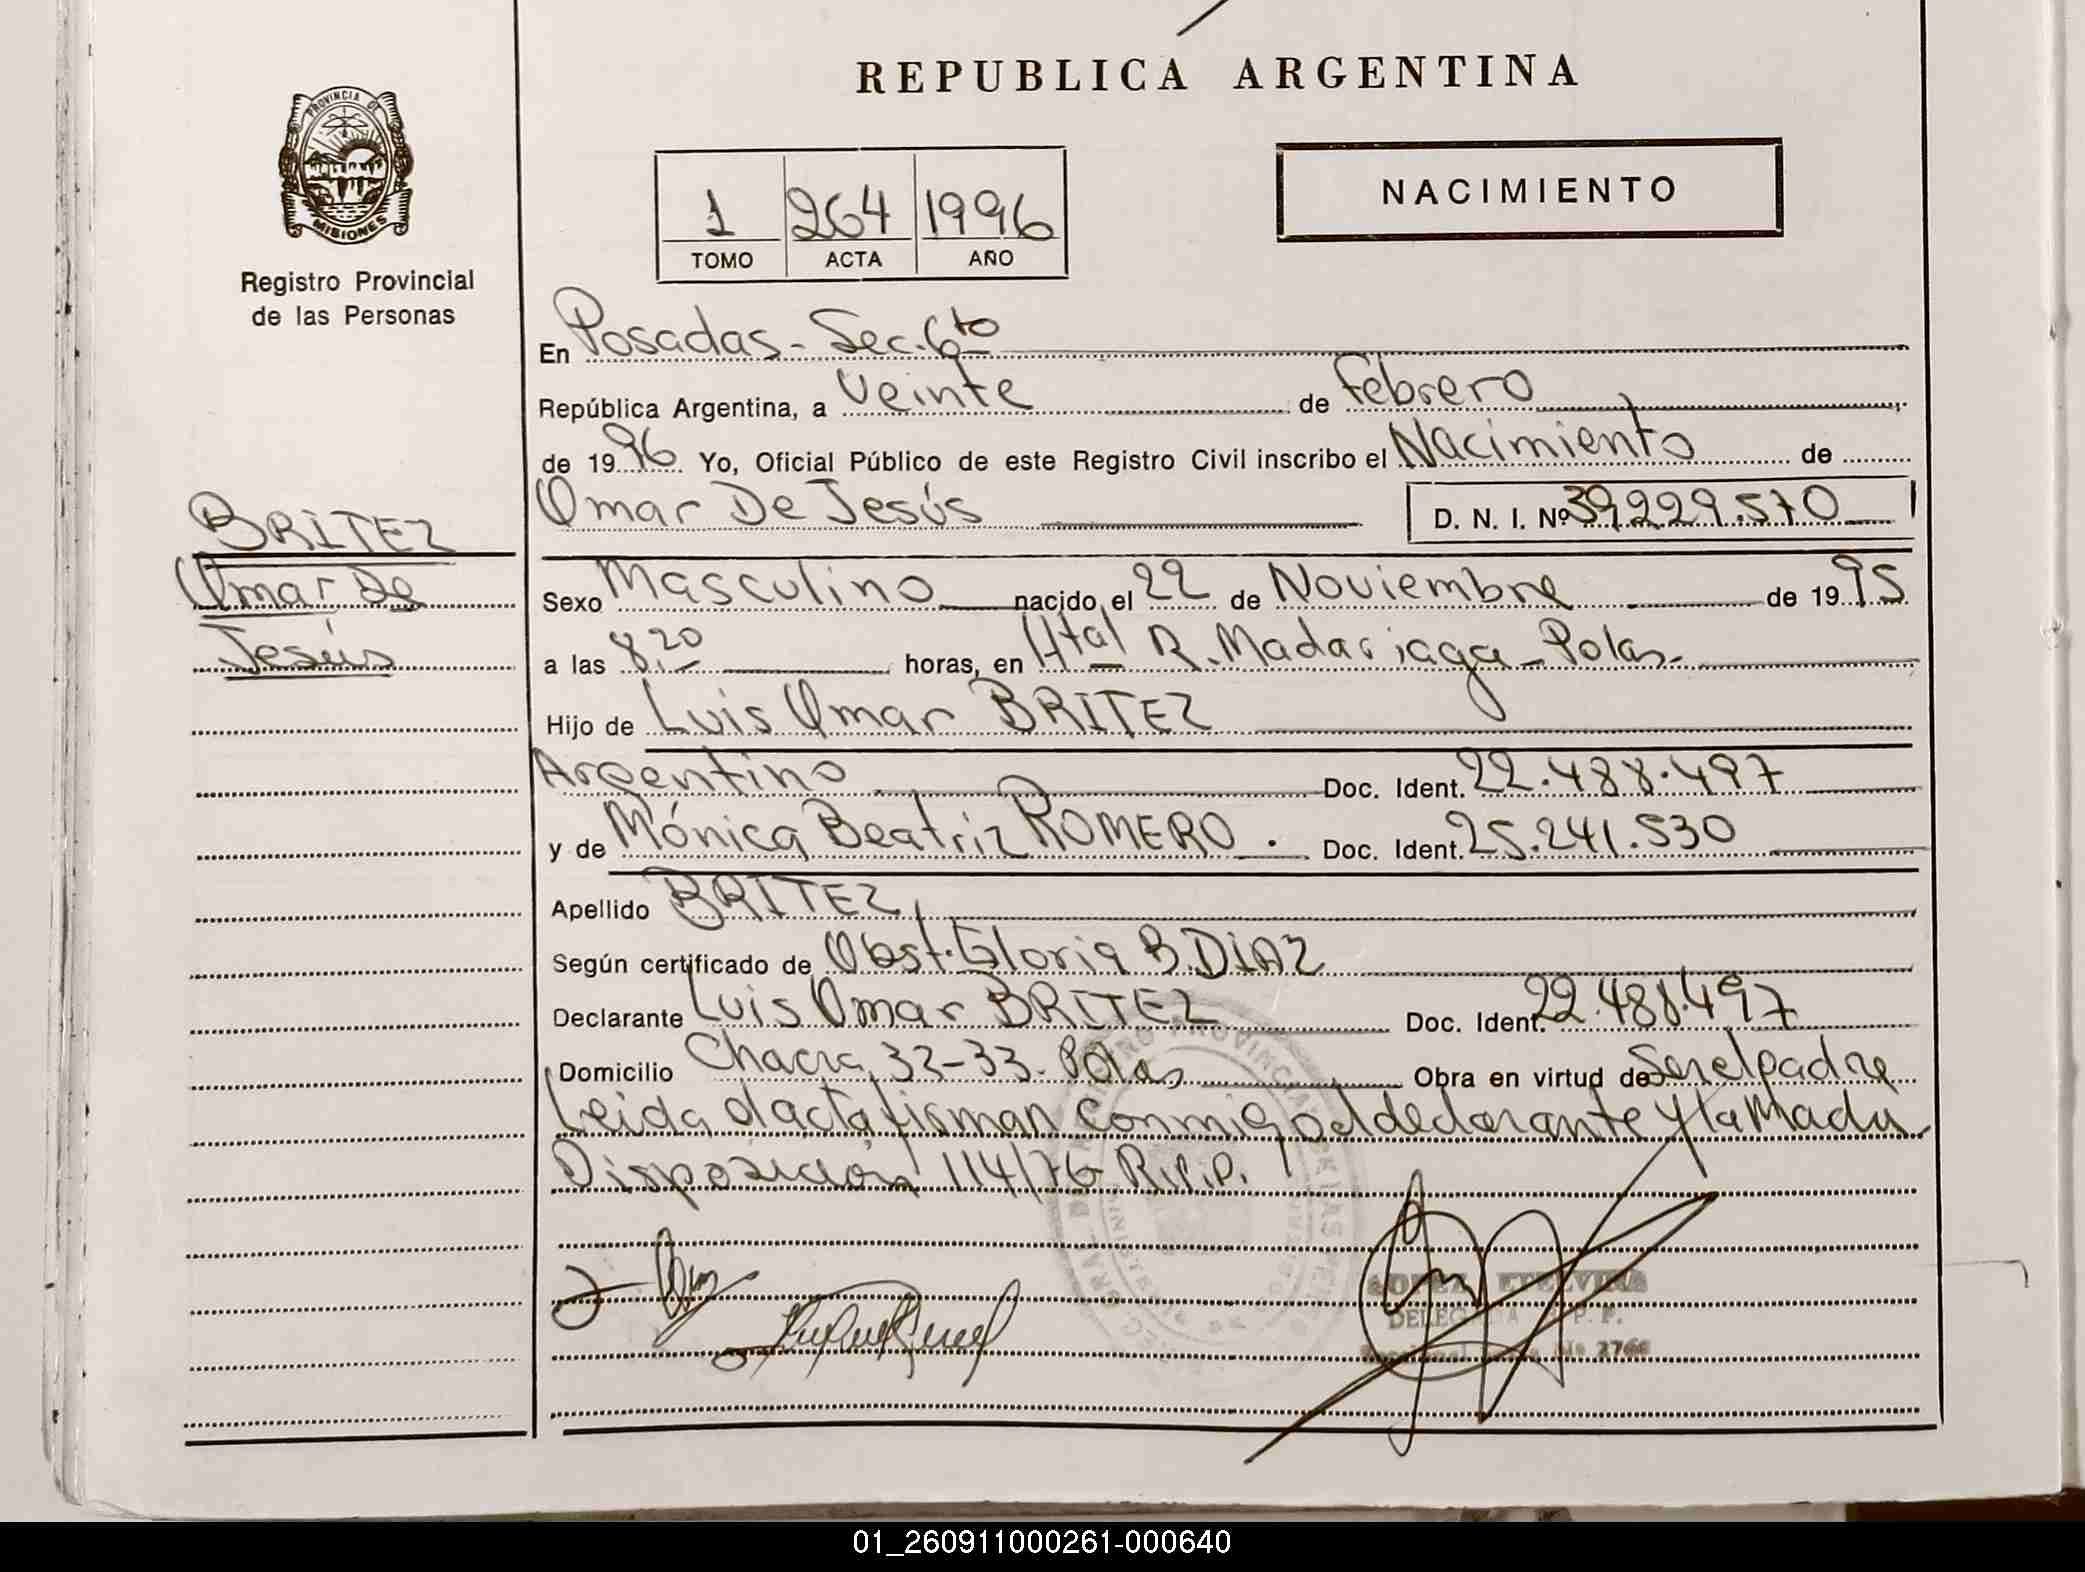 REPUBLICA ARGENTINA
PROVINCIA DE
MISIONES
Registro Provincial
de las Personas
NACIMIENTO
1 264 1996
TOMO ACTA AÑO
En Posadas - Sec. 6to
República Argentina, a veinte de Febrero
de 1996 Yo, Oficial Público de este Registro Civil inscribo el Nacimiento de
Omar De Jesús D. N. I. Nº 39.229.570
BRITEZ
Omar De
Jesús
Sexo Masculino nacido, el 22 de Noviembre de 1995
a las 8,20 horas, en Htal R. Madariaga - Pdas.-
Hijo de Luis Omar BRITEZ
Argentino Doc. Ident. 22.488.497
y de Mónica Beatriz ROMERO. Doc. Ident. 25.241.530
Apellido BRITEZ
Según certificado de Obst. Gloria B. DIAZ
Declarante Luis Omar BRITEZ Doc. Ident. 22.488.497
Domicilio Chacra 32-33. Pdas Obra en virtud de Ser el padre
Leida el acta firman conmigo el declarante y la Madre
Disposición 114/76 R.P.P.
ETELVINA
DELEGADA R. P. P.
2766
01_260911000261-000640